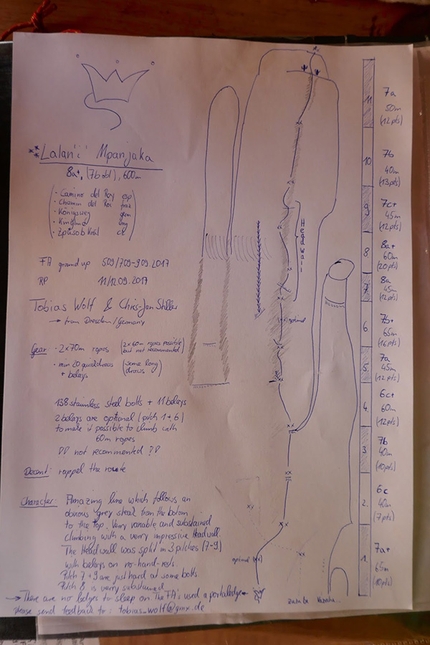 "Lalan'i Mpanjaka"
8a+, (7b obl), 600m
Camino del Rey esp
Chemin du Roi fra
Königsweg
FA ground up 509/709-909 2017
RP 11/12.09.2017
Tobias Wolf & Chris-Jan Stiller
→ from Dresden/Germany
Gear: - 2x70m ropes (2x60m ropes possible but not recommended)
- min 20 quickdraws (some long draws)
+ belays
138 stainless steel bolts + 11 belays
2 belays are optional (pitch 1+6)
to make it possible to climb with
60m ropes
not recommended
Descent: rappel the route
Character: Amazing line which follows an
obvious grey streak from the bottom
to the top. Very variable and sustained
climbing with a very impressive headwall.
The Headwall was split in 3 pitches (7-9)
with belays on no-hand-rests.
Pitch 7+9 are just hard at some bolts
Pitch 8 is very sustained.
→ There are no ledges to sleep on. The FA's used a portaledge
Please send feedback to: tobias_wolf@gmx.de
Headwall
optional
optional
11
7a
50m
(12pts)
10
7b
40m
(13pts)
9
7c+
45m
(12pts)
8
8a+
60m
(20pts)
7
8a
45m
6
7b+
65m
5
7a
45m
(12pts)
4
6c+
60m
(12pts)
3
7b
40m
(10pts)
2
6c
40m
(7pts)
1
7a+
65m
(10pts)